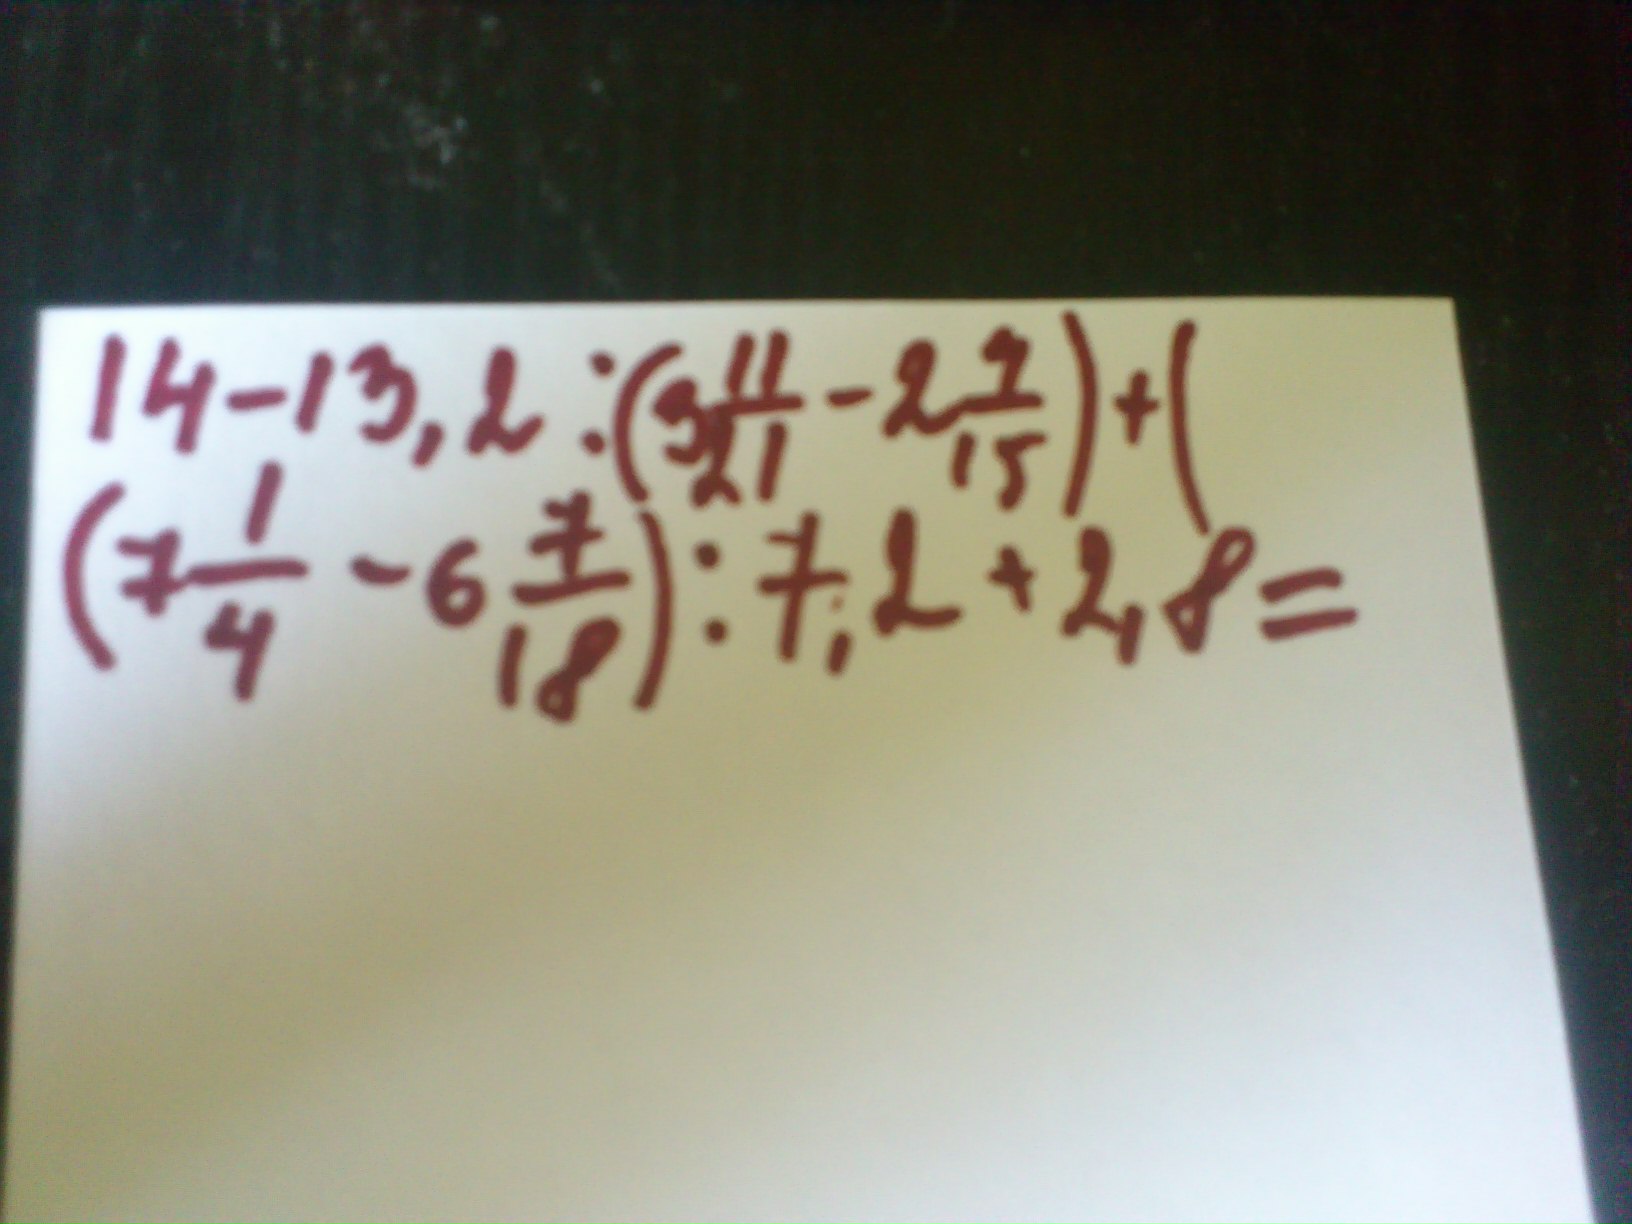 14-13,2:(3 11/21 - 2 7/15)+(
(7 1/4 - 6 7/18):7,2+2,8=